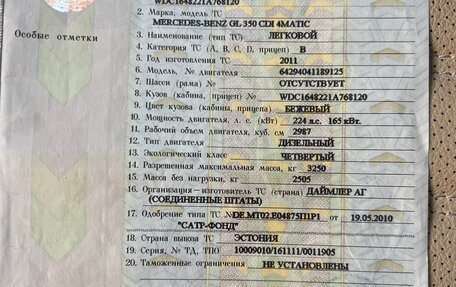 WDC1648221A768120
2. Марка, модель ТС
MERCEDES-BENZ GL 350 CDI 4MATIC
Особые отметки
3. Наименование (тип ТС) ЛЕГКОВОЙ
4. Категория ТС (А, В, С, D, прицеп) В
5. Год изготовления ТС 2011
6. Модель, № двигателя 64294041189125
7. Шасси (рама) № ОТСУТСТВУЕТ
8. Кузов (кабина, прицеп) № WDC1648221A768120
9. Цвет кузова (кабины, прицепа) БЕЖЕВЫЙ
10. Мощность двигателя, л. с. (кВт) 224 л.с. 165 кВт.
11. Рабочий объем двигателя, куб. см 2987
12. Тип двигателя ДИЗЕЛЬНЫЙ
13. Экологический класс ЧЕТВЕРТЫЙ
14. Разрешенная максимальная масса, кг 3250
15. Масса без нагрузки, кг 2505
16. Организация—изготовитель ТС (страна) ДАЙМЛЕР АГ
(СОЕДИНЕННЫЕ ШТАТЫ)
17. Одобрение типа ТС №DE.MT02.E04875П1Р1 от 19.05.2010
"САТР-ФОНД"
18. Страна вывоза ТС ЭСТОНИЯ
19. Серия, № ТД, ТПО 10009010/161111/0011905
20. Таможенные ограничения НЕ УСТАНОВЛЕНЫ